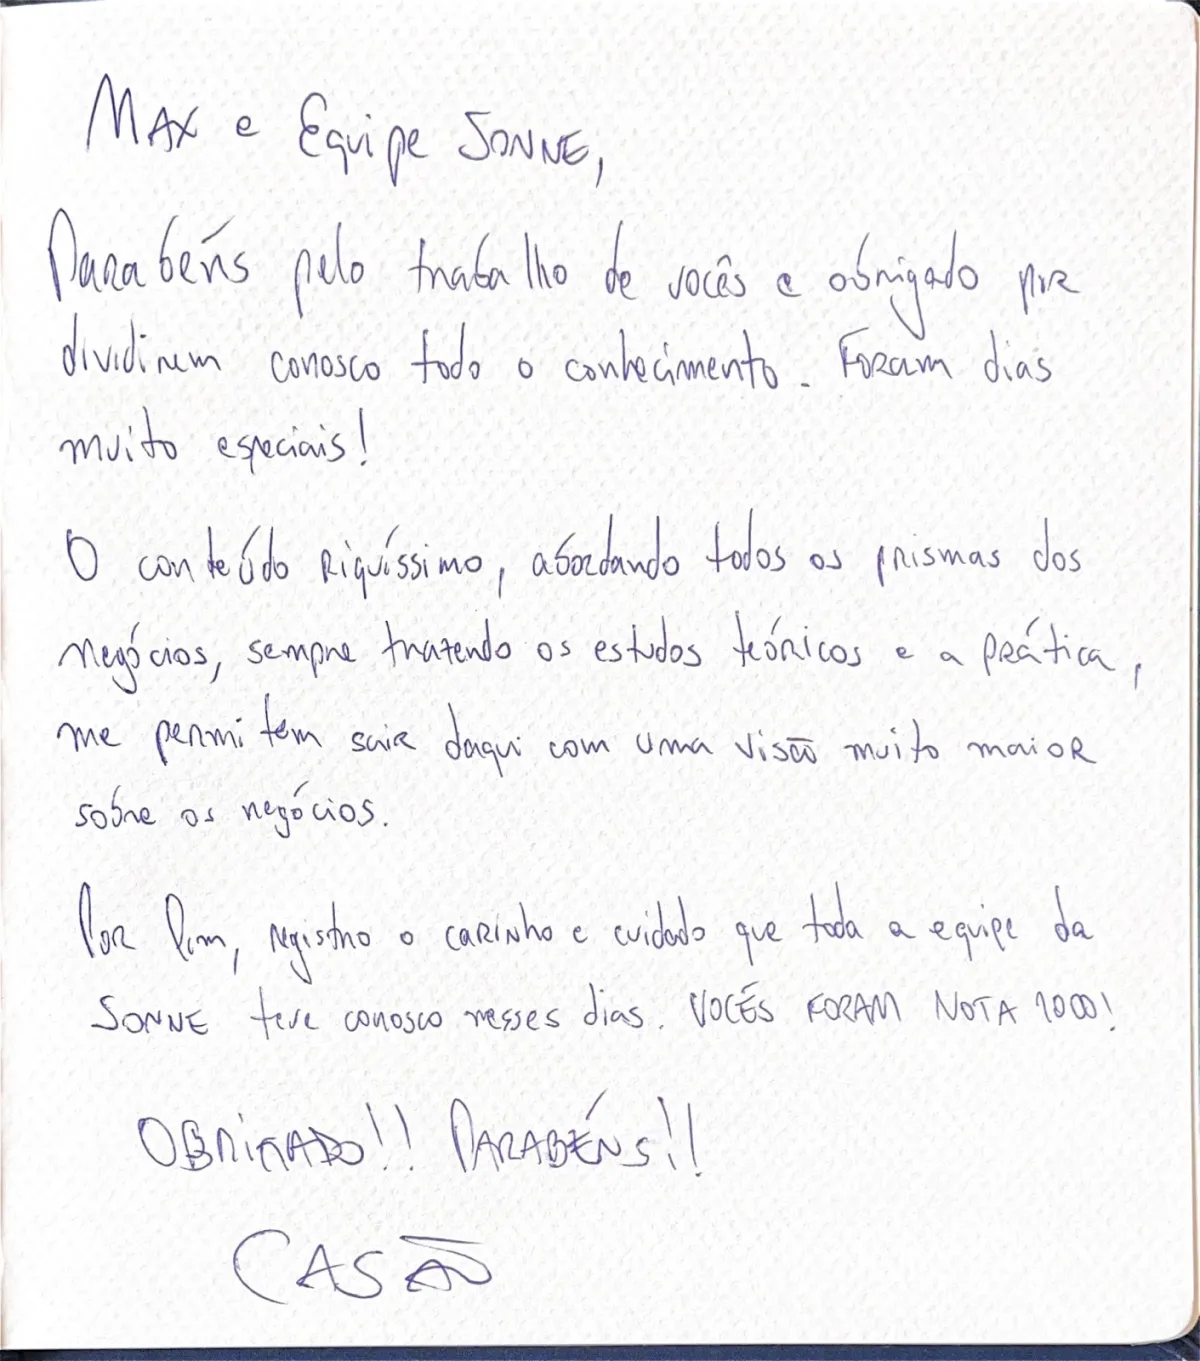 MAX e Equipe SONNE,
Parabéns pelo trabalho de vocês e obrigado por
dividirem conosco todo o conhecimento. Foram dias
muito especiais!
O conteúdo riquíssimo, abordando todos os prismas dos
negócios, sempre trazendo os estudos teóricos e a prática,
me permitem sair daqui com uma visão muito maior
sobre os negócios.
Por fim, registro o carinho e cuidado que toda a equipe da
SONNE teve conosco nesses dias. VOCÊS FORAM NOTA 1000!
OBRIGADO!! PARABÉNS!!
CASÃO